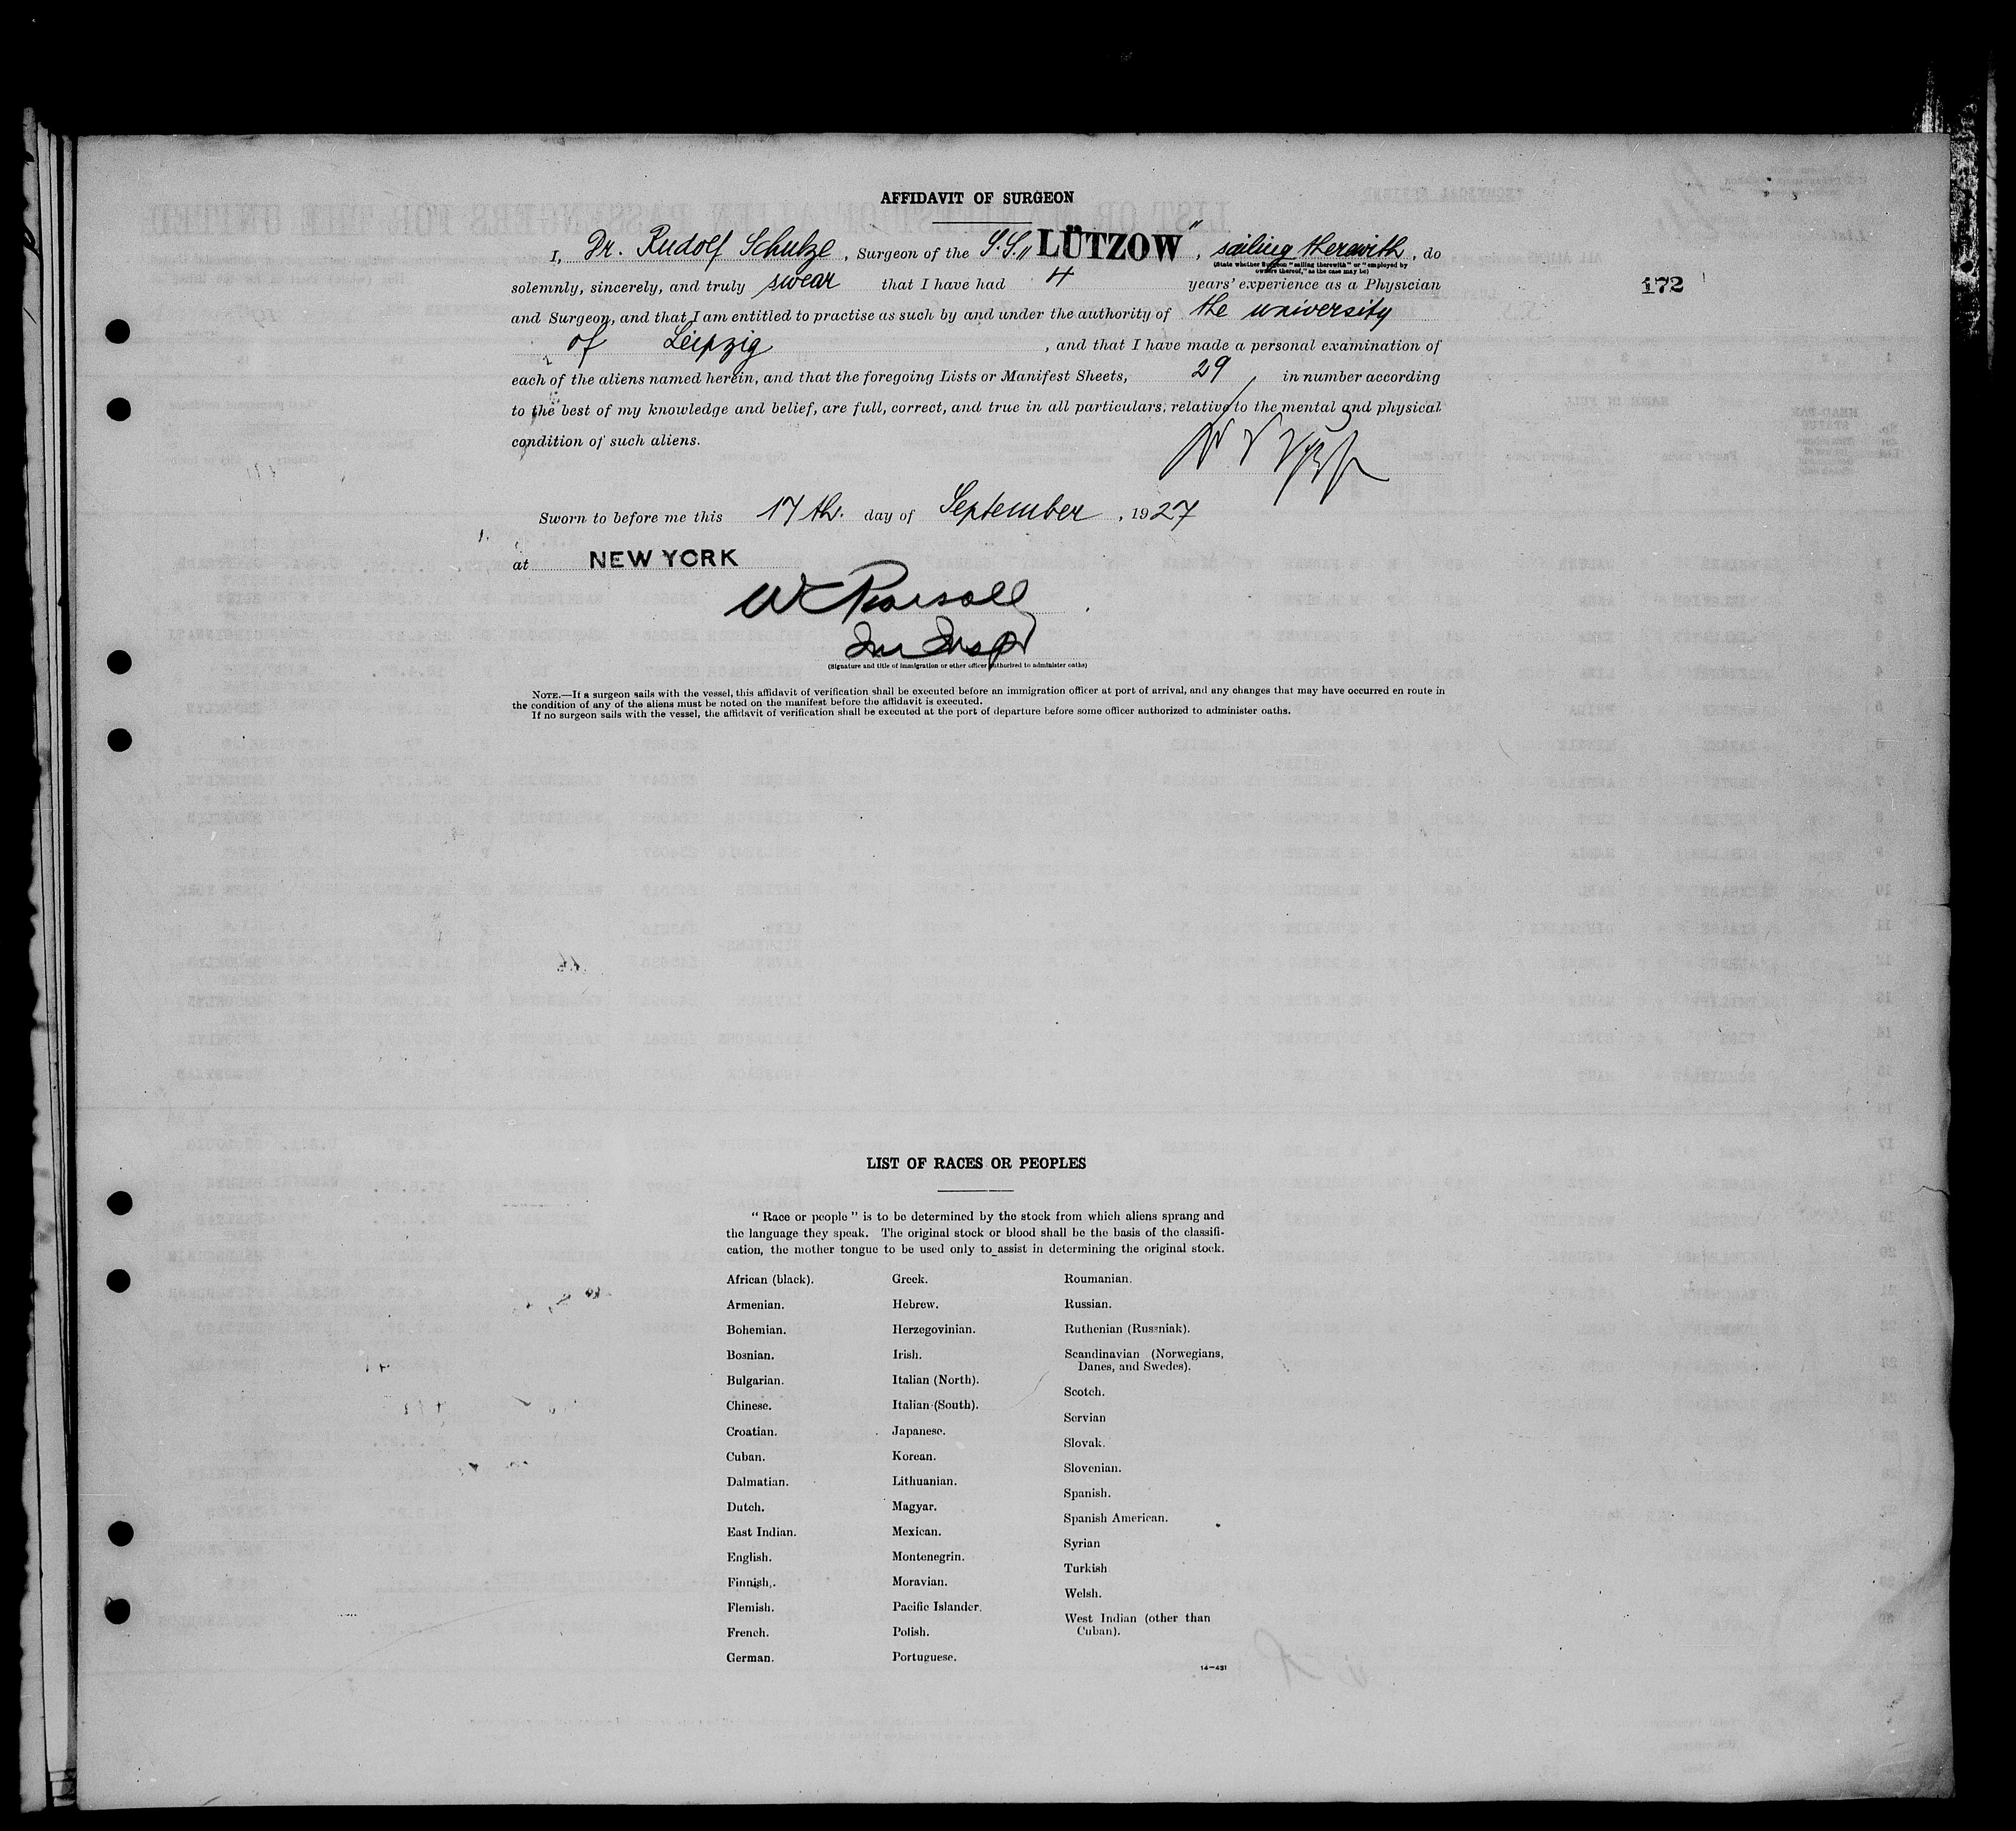 AFFIDAVIT OF SURGEON
I, Dr. Rudolf Schulze, Surgeon of the S.S. „LÜTZOW", sailing therewith, do
(State whether Surgeon "sailing therewith" or "employed by
owners thereof," as the case may be)
solemnly, sincerely, and truly swear that I have had 4 years' experience as a Physician
172
and Surgeon, and that I am entitled to practise as such by and under the authority of the university
of Leipzig, and that I have made a personal examination of
each of the aliens named herein, and that the foregoing Lists or Manifest Sheets, 29 in number according
to the best of my knowledge and belief, are full, correct, and true in all particulars, relative to the mental and physical
condition of such aliens.
Sworn to before me this 17th. day of September, 1927
at NEW YORK
W Pearsall
Imm Insp
(Signature and title of immigration or other officer authorized to administer oaths)
NOTE.—If a surgeon sails with the vessel, this affidavit of verification shall be executed before an immigration officer at port of arrival, and any changes that may have occurred en route in
the condition of any of the aliens must be noted on the manifest before the affidavit is executed.
If no surgeon sails with the vessel, the affidavit of verification shall be executed at the port of departure before some officer authorized to administer oaths.
LIST OF RACES OR PEOPLES
"Race or people" is to be determined by the stock from which aliens sprang and
the language they speak. The original stock or blood shall be the basis of the classifi-
cation, the mother tongue to be used only to assist in determining the original stock.
African (black).
Armenian.
Bohemian.
Bosnian.
Bulgarian.
Chinese.
Croatian.
Cuban.
Dalmatian.
Dutch.
East Indian.
English.
Finnish.
Flemish.
French.
German.
Greek.
Hebrew.
Herzegovinian.
Irish.
Italian (North).
Italian (South).
Japanese.
Korean.
Lithuanian.
Magyar.
Mexican.
Montenegrin.
Moravian.
Pacific Islander.
Polish.
Portuguese.
Roumanian.
Russian.
Ruthenian (Russniak).
Scandinavian (Norwegians,
Danes, and Swedes).
Scotch.
Servian
Slovak.
Slovenian.
Spanish.
Spanish American.
Syrian
Turkish
Welsh.
West Indian (other than
Cuban).
14—431